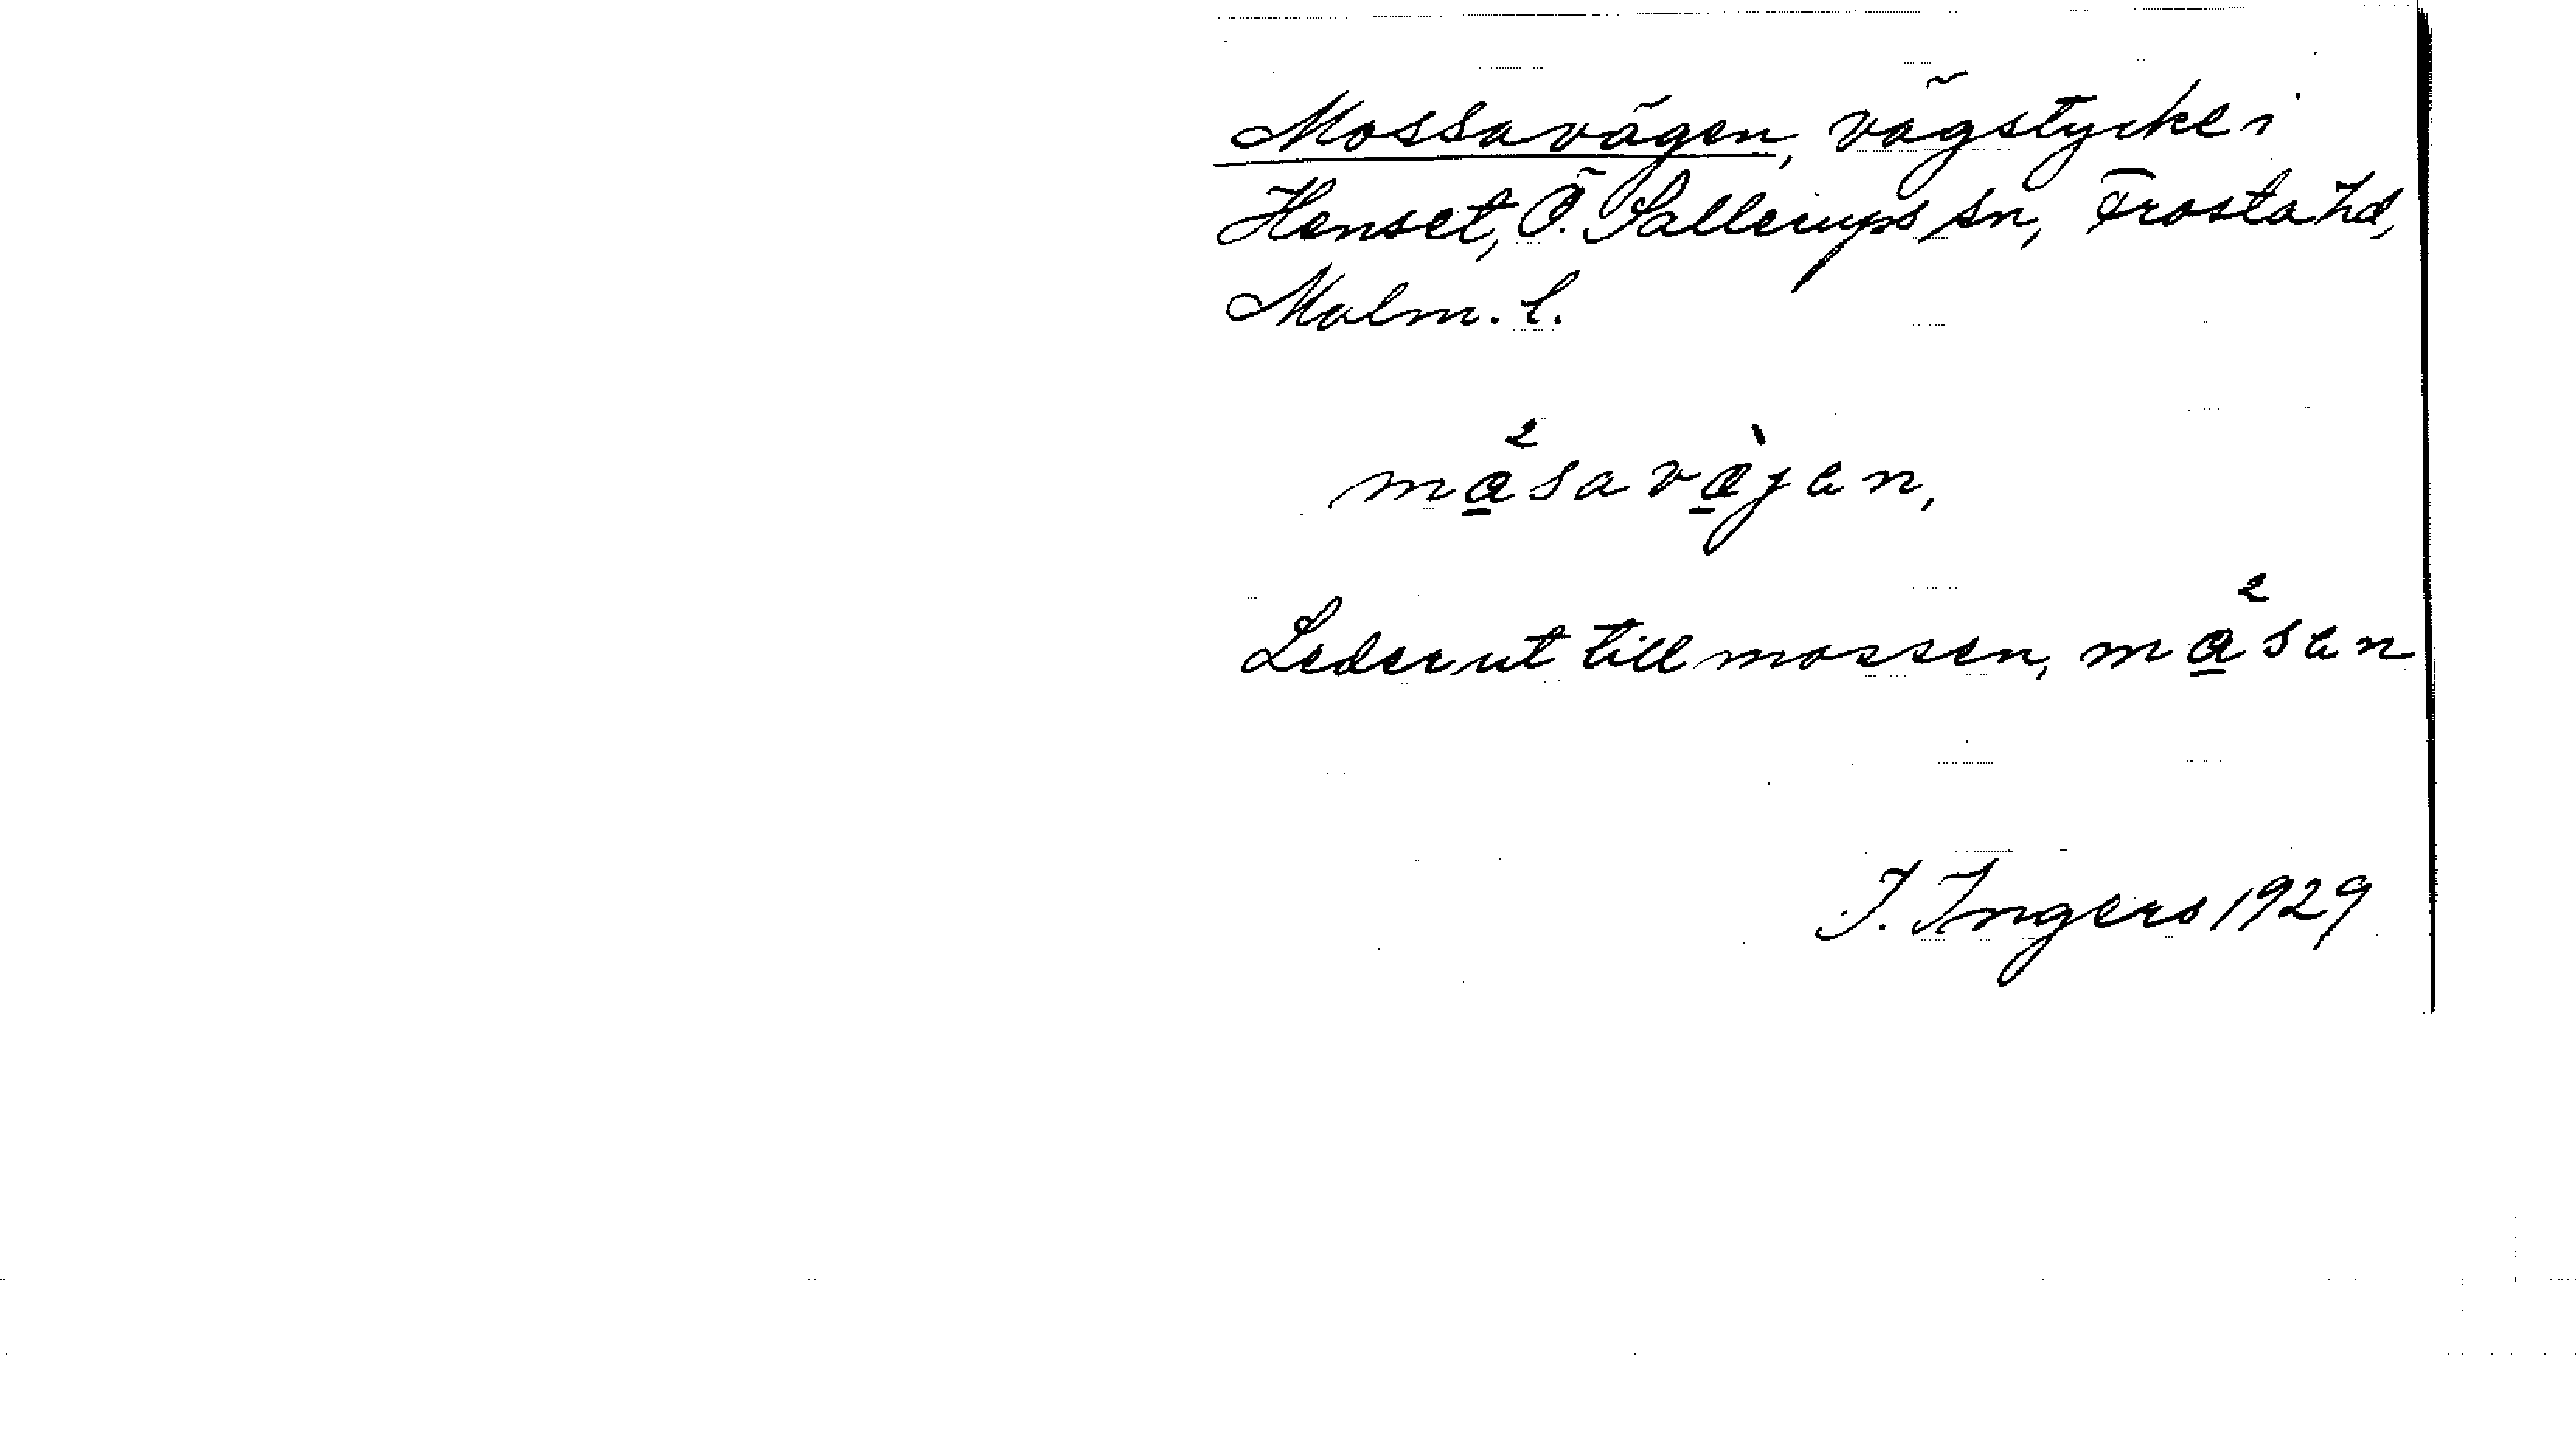 Mossavägen, vägstycke i
Henset, Ö. Sallerups sn, Frosta hd,
Malm. l.
må²savàjen,
Leder ut till mossen, må²sen
I. Ingers 1929